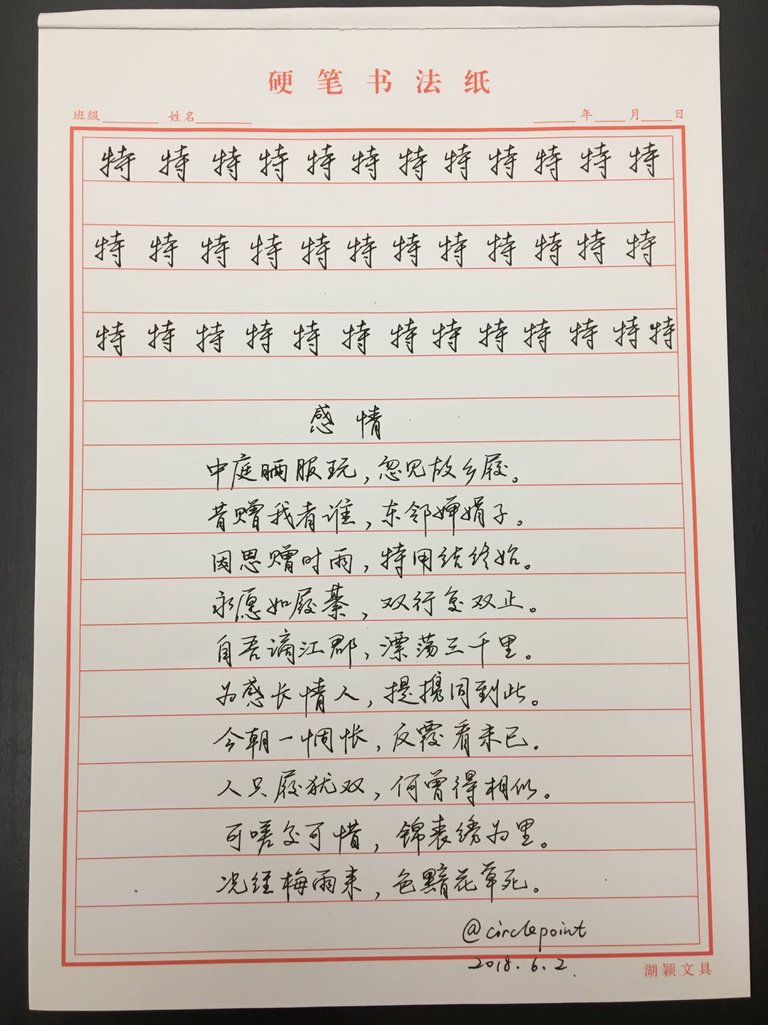 硬笔书法纸
班级 姓名 年 月 日
特特特特特特特特特特特特
特特特特特特特特特特特特
特特特特特特特特特特特特特
感情
中庭晒服玩，忽见故乡屐。
昔赠我者谁，东邻婵娟子。
因思赠时雨，特用结终始。
永愿如屐綦，双行复双止。
自吾谪江郡，漂荡三千里。
为感长情人，提携同到此。
今朝一惆怅，反覆看未已。
人只屐犹双，何曾得相似。
可嗟复可惜，锦表绣为里。
况经梅雨来，色黯花草死。
@circlepoint
2018.6.2.
湖颖文具